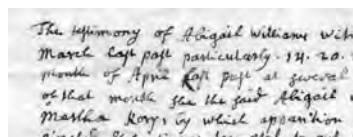 The testimony of Abigail Williams wit
March last past particularly. 14. 20.
month of April last past at several
of that month she the said Abigail
Martha Kory, by which apposition